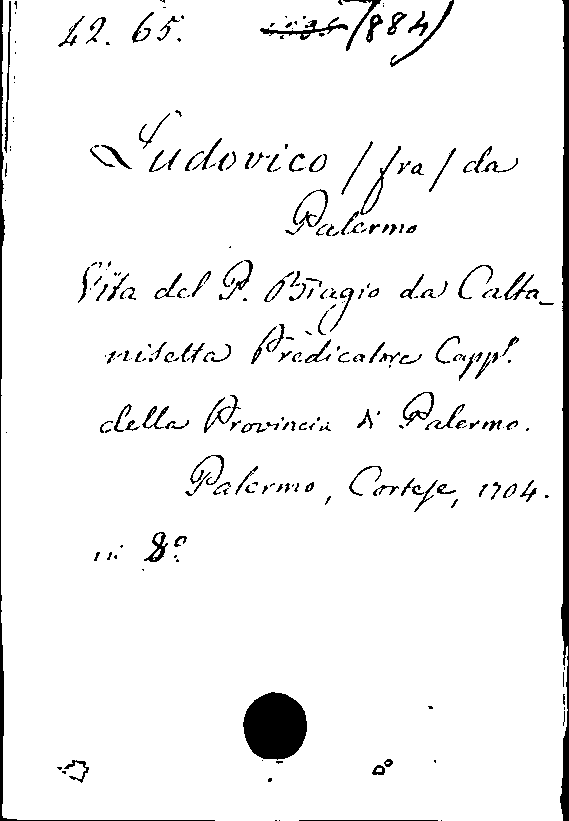 42. 65. (884)
Ludovico / fra / da
Palermo
Vita del P. Biagio da Calta_
nisetta Predicatore Capp.
della Provincia di Palermo.
Palermo, Cortese, 1704.
in 8º